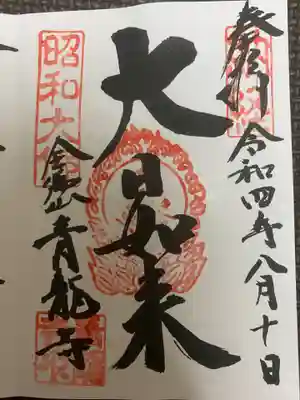 奉拝 令和四年八月十日
大日如来
昭和大仏
全山青龍寺